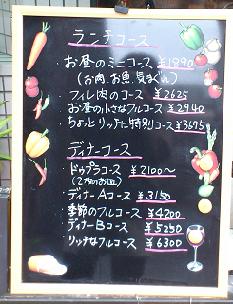 ランチコース
・お昼のミニコース ¥1990
(お肉、お魚、気まぐれ)
・フィレ肉のコース ¥2625
・お昼の小さなフルコース ¥2940
・ちょっとリッチに特別コース ¥3675
ディナーコース
・ドゥプラコース ¥2100〜
(2つのお皿)
・ディナーAコース ¥3150
・季節のフルコース ¥4200
・ディナーBコース ¥5250
・リッチなフルコース ¥6300